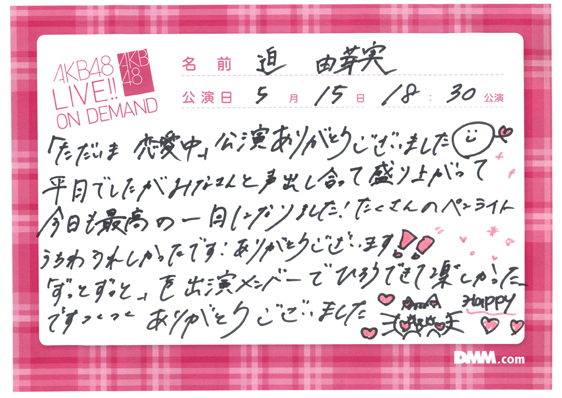 AKB48
LIVE!!
ON DEMAND
AKB
48
名前 迫 由芽実
公演日 5月15日 18:30公演
「ただいま 恋愛中」公演ありがとうございました
平日でしたがみなさんと声出し合って盛り上がって
今日も最高の一日になりました!たくさんのペンライト
うれしかったです!ありがとうございます!!
「ずっとずっと」を出演メンバーでひろうできて楽しかった
ですっっっ ありがとうございました
Happy
DMM.com